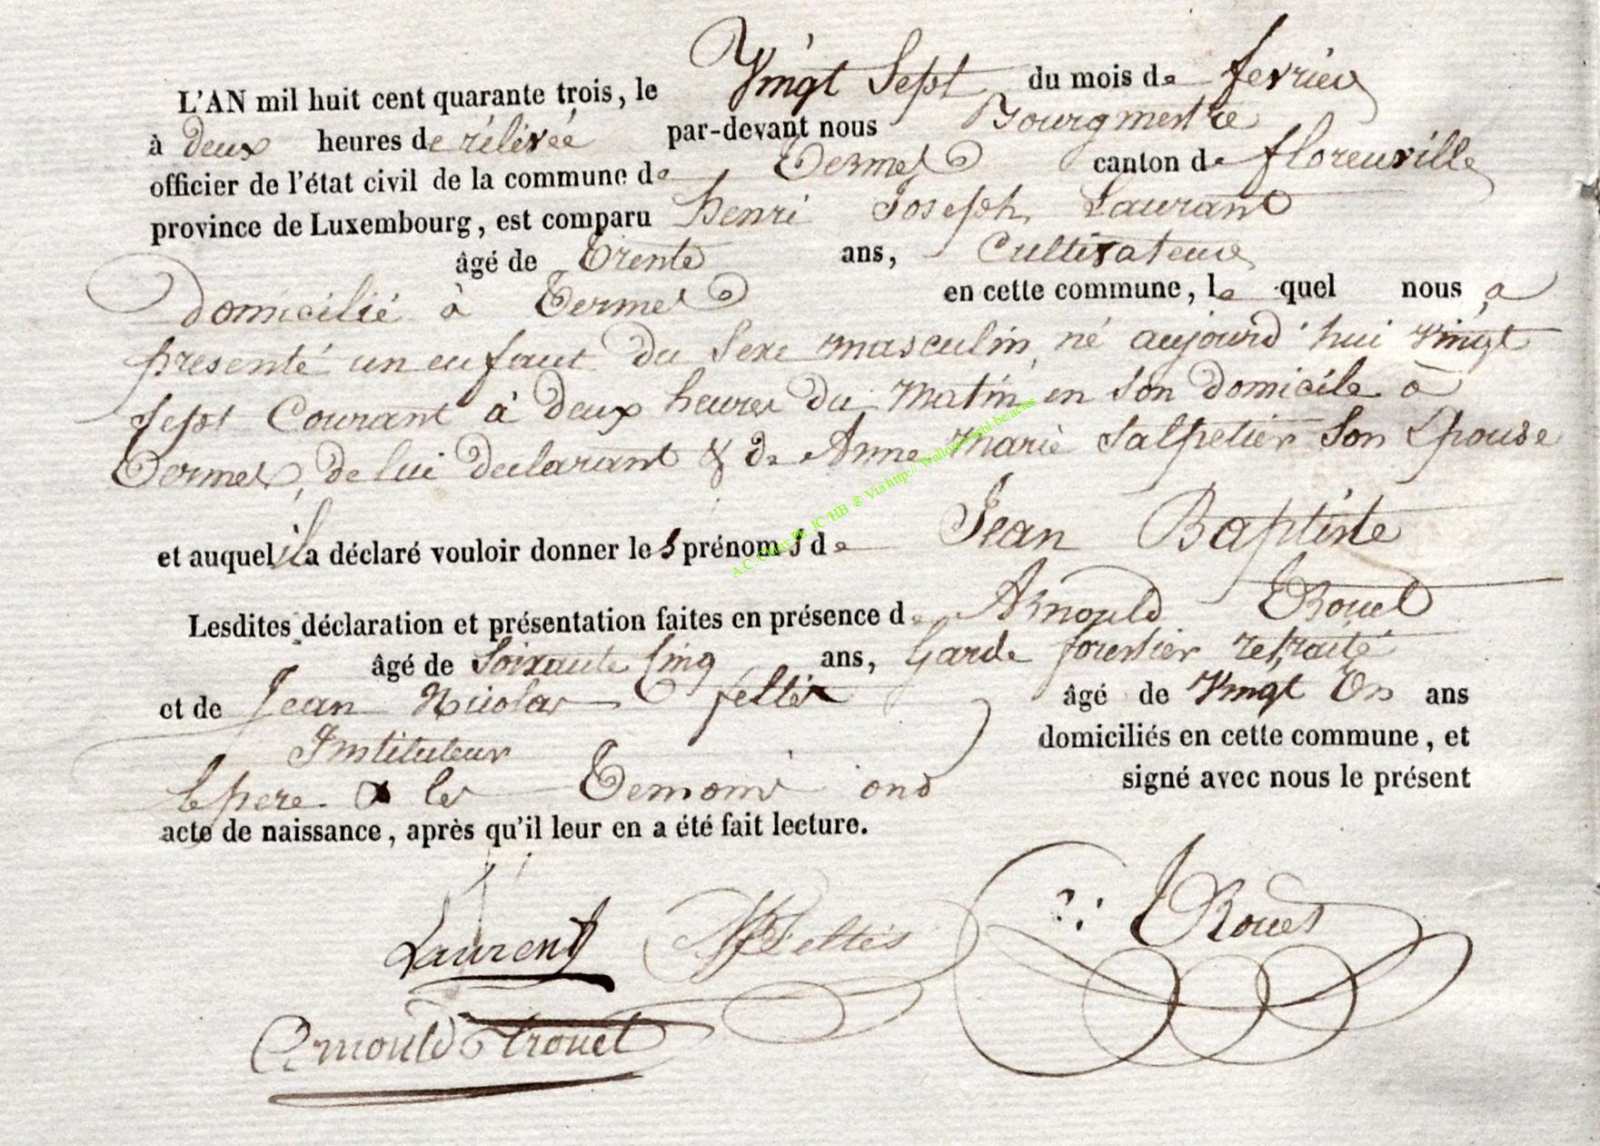 L'AN mil huit cent quarante trois, le Vingt Sept du mois de fevrier
à deux heures de rélévée par-devant nous Bourgmestre
officier de l'état civil de la commune de Termes canton de florenville
province de Luxembourg, est comparu henri Joseph Laurant
âgé de Trente ans, Cultivateur
Domicilié à Termes en cette commune, le quel nous a
presenté un enfant du Sexe masculin, né aujourd'hui vingt
Sept Courant à deux heures du Matin, en Son domicile à
Termes, de lui declarant & de Anne Marie Salpetier Son Epouse
et auquel il a déclaré vouloir donner les prénoms de Jean Baptiste
Lesdites déclaration et présentation faites en présence de Arnould Trouet
âgé de Soixante Cinq ans, Garde forestier retraité
et de Jean Nicolas feltés âgé de Vingt ans
Instituteur domiciliés en cette commune, et
le pere & les Temoins ond signé avec nous le présent
acte de naissance, après qu'il leur en a été fait lecture.
Laurent Feltés Trouet
Arnould Trouet